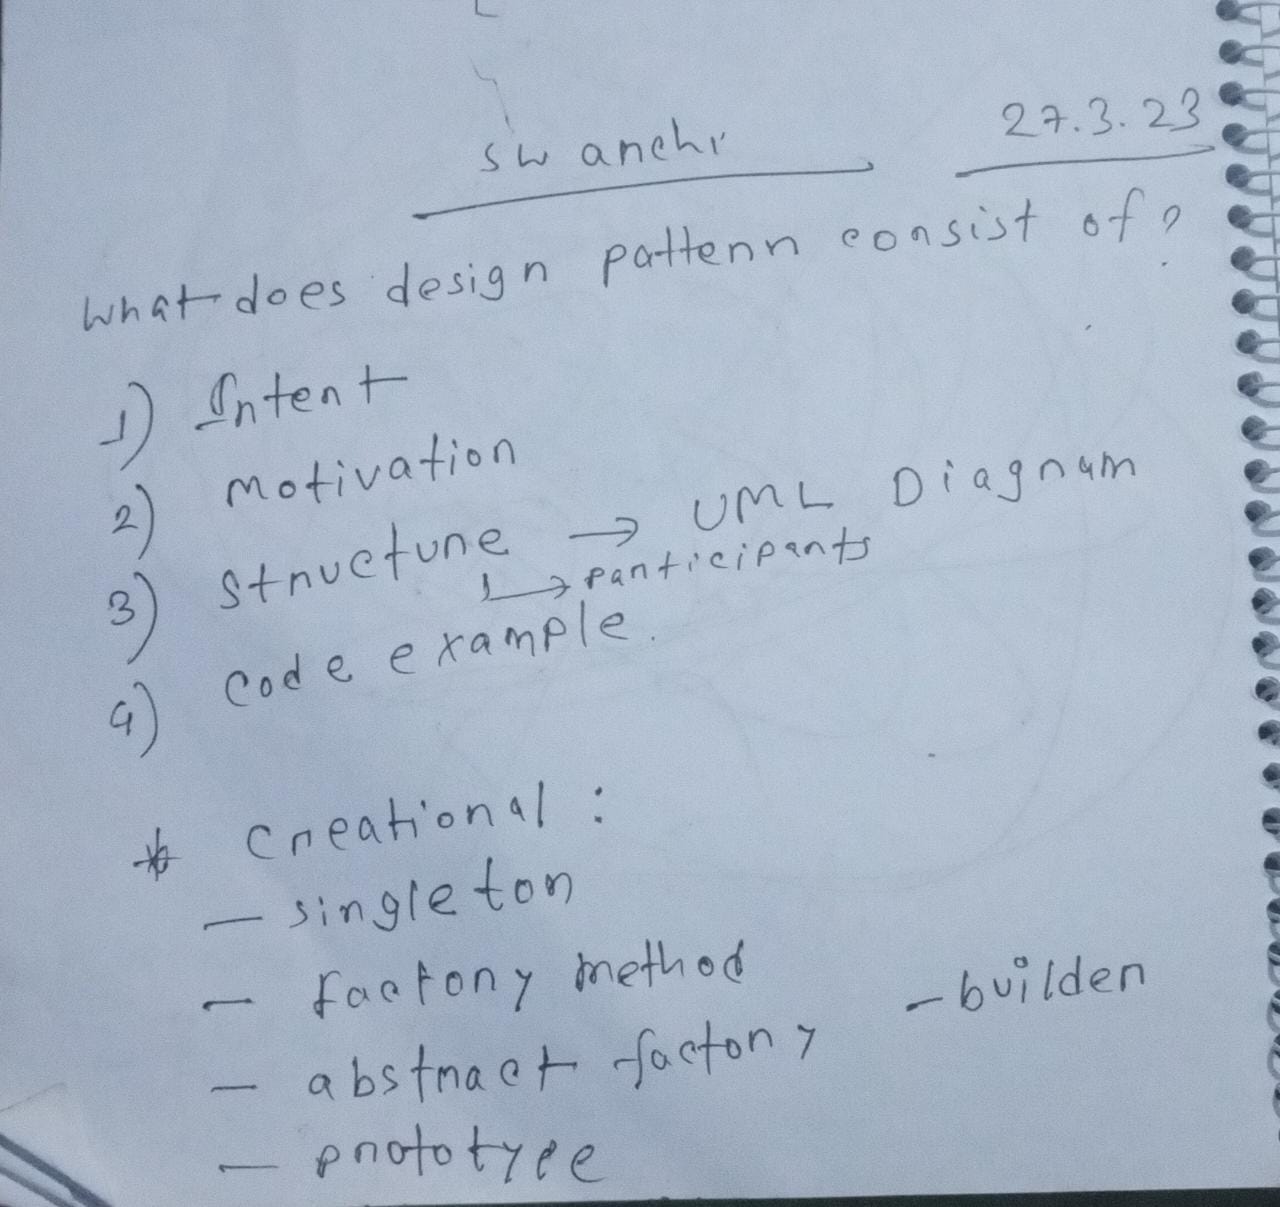 sw archi
27.3.23
What does design pattern consist of?
1) Intent
2) motivation
3) structure → UML Diagram
↳ participants
4) code example.
* Creational :
- singleton
- factory method
- builder
- abstract factory
- prototype